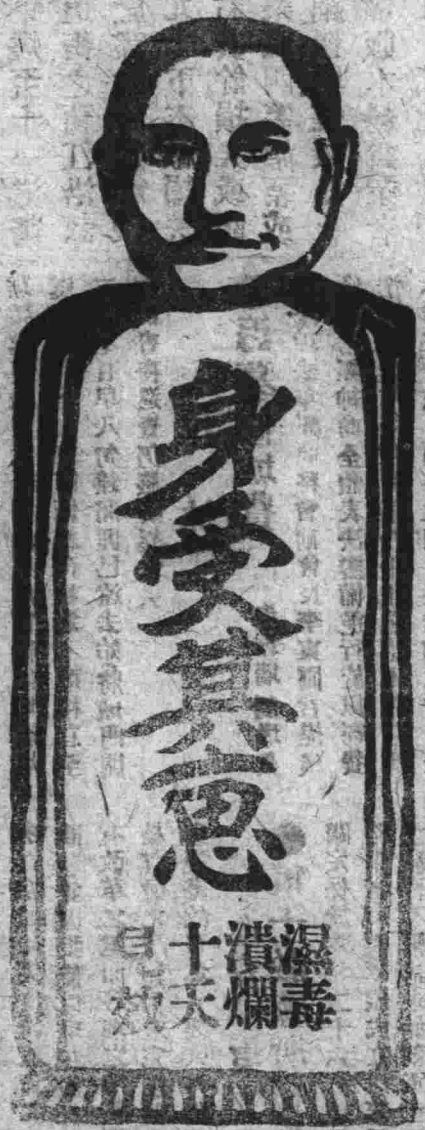 身受其惠
濕毒
潰爛
十天
效